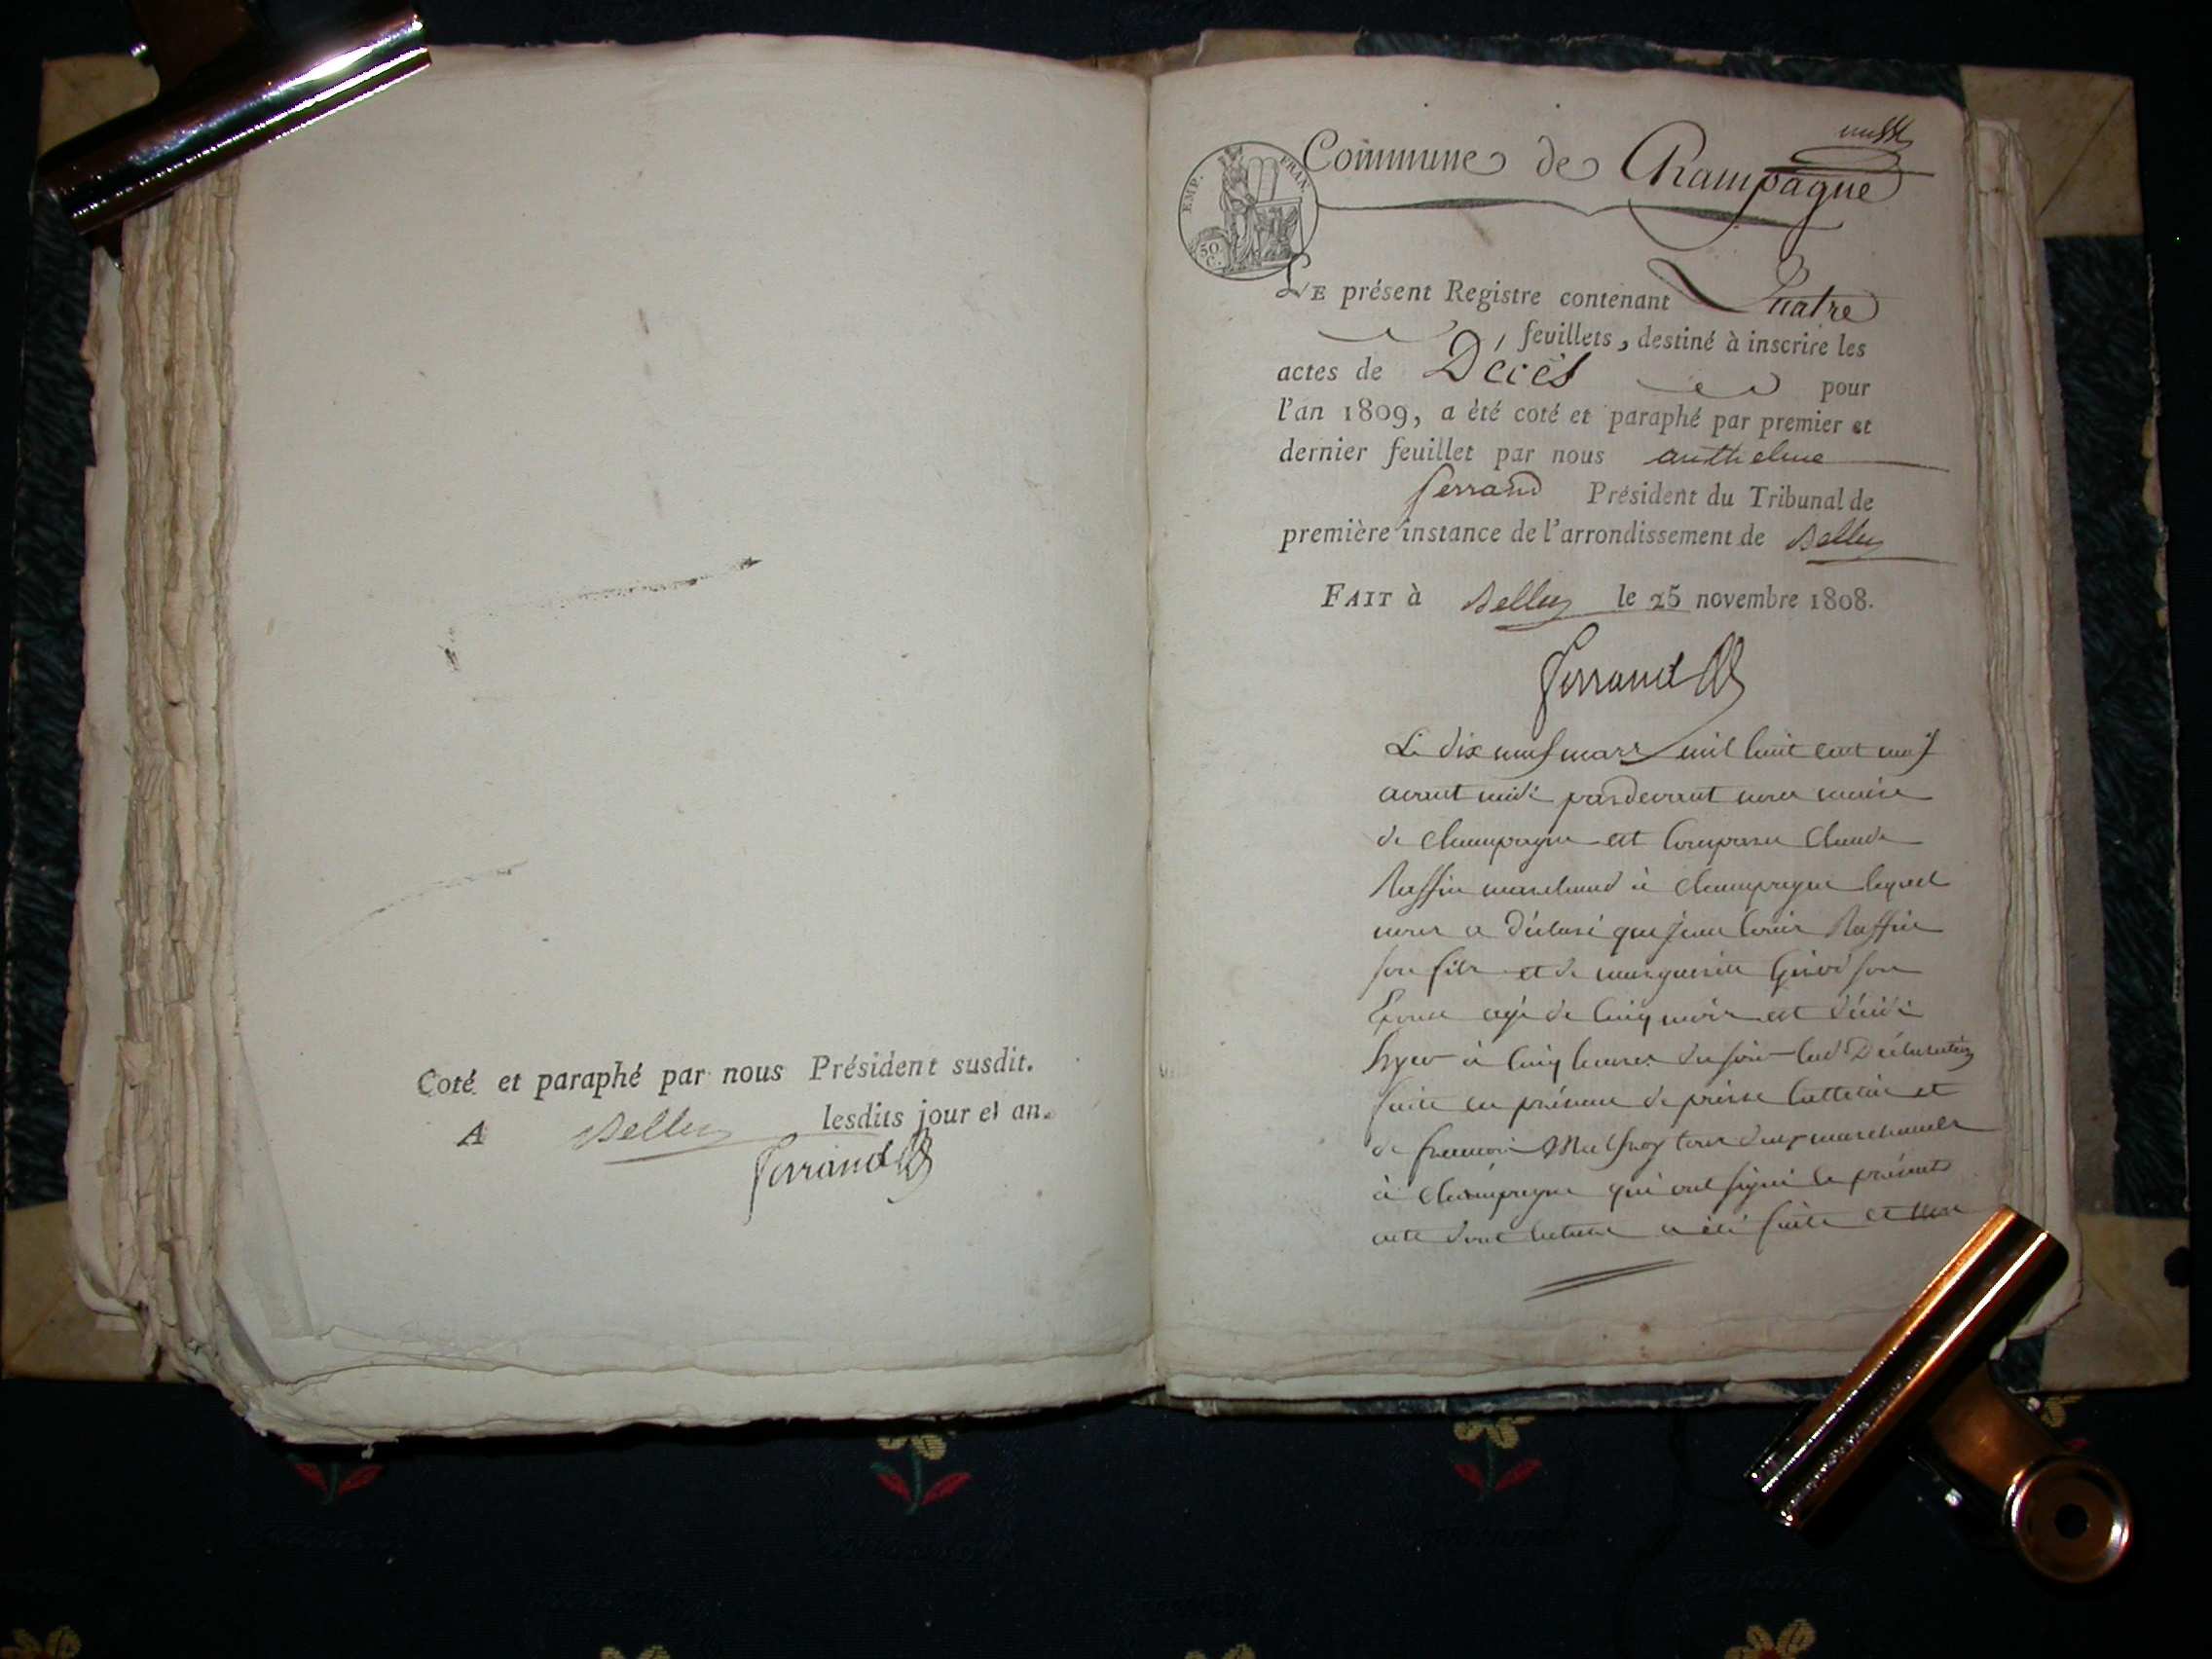 Coté et paraphé par nous Président susdit.
A Belley lesdits jour et an.
Ferrand
Commune de Champagne
EMP. FRAN.
50 C.
LE présent Registre contenant Quatre
feuillets, destiné à inscrire les
actes de Décès pour
l'an 1809, a été coté et paraphé par premier et
dernier feuillet par nous anthelme
ferrand Président du Tribunal de
première instance de l'arrondissement de Belley
FAIT à Belley le 25 novembre 1808.
Ferrand
Le dix neuf mars mil huit cent neuf
avant midi pardevant nous maire
de champagne est comparu Claude
Ruffin marchand à champagne lequel
nous a déclaré que jean louis Ruffin
son fils et de marguerite son
Epouse agé de cinq mois est décédé
hyer à cinq heures du soir lad Déclaration
faite en présence de et
de francois tous deux marchands
à champagne qui ont signé le présent
acte dont lecture a été faite et